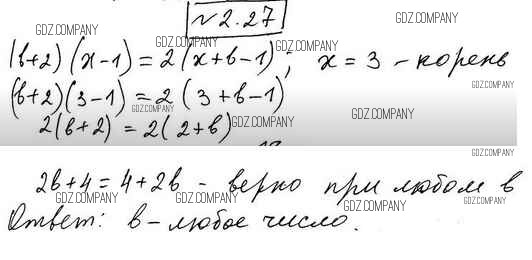 № 2.27
(b+2)(x-1) = 2(x+b-1); x = 3 - корень
(b+2)(3-1) = 2(3+b-1)
2(b+2) = 2(2+b)
2b+4 = 4+2b - верно при любом b
Ответ: b - любое число.
GDZ.COMPANY
GDZ.COMPANY
GDZ.COMPANY
GDZ.COMPANY
GDZ.COMPANY
GDZ.COMPANY
GDZ.COMPANY
GDZ.COMPANY
GDZ.COMPANY
GDZ.COMPANY
GDZ.COMPANY
GDZ.COMPANY
GDZ.COMPANY
GDZ.COMPANY